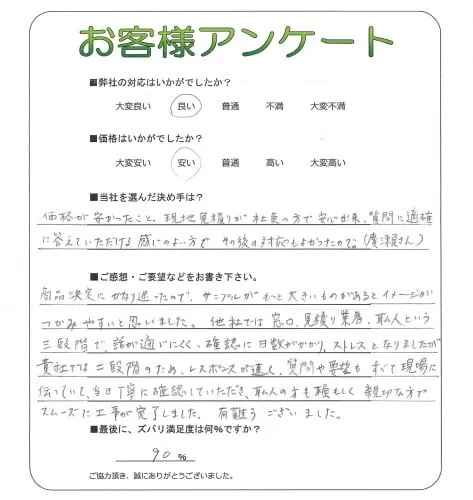 お客様アンケート
■弊社の対応はいかがでしたか？
大変良い 良い 普通 不満 大変不満
■価格はいかがでしたか？
大変安い 安い 普通 高い 大変高い
■当社を選んだ決め手は？
価格が安かったこと、現地見積りが社員の方で安心出来、質問に適確
に答えていただける感じのよい方で その後の対応もよかったので。(廣瀬さん)
■ご感想・ご要望などをお書き下さい。
商品決定にかなり迷ったので、サンプルがもっと大きいものがあるとイメージが
つかみやすいと思いました。他社では窓口、見積り業者、職人という
三段階で、話が通じにくく、確認に日数がかかり、ストレスとなりましたが
貴社では二段階のため、レスポンスが速く、質問や要望もすべて現場に
伝っていて、当日丁寧に確認していただき、職人の方も頼もしく 親切な方で
スムーズに工事が完了しました。有難うございました。
■最後に、ズバリ満足度は何%ですか？
90 %
ご協力頂き、誠にありがとうございました。